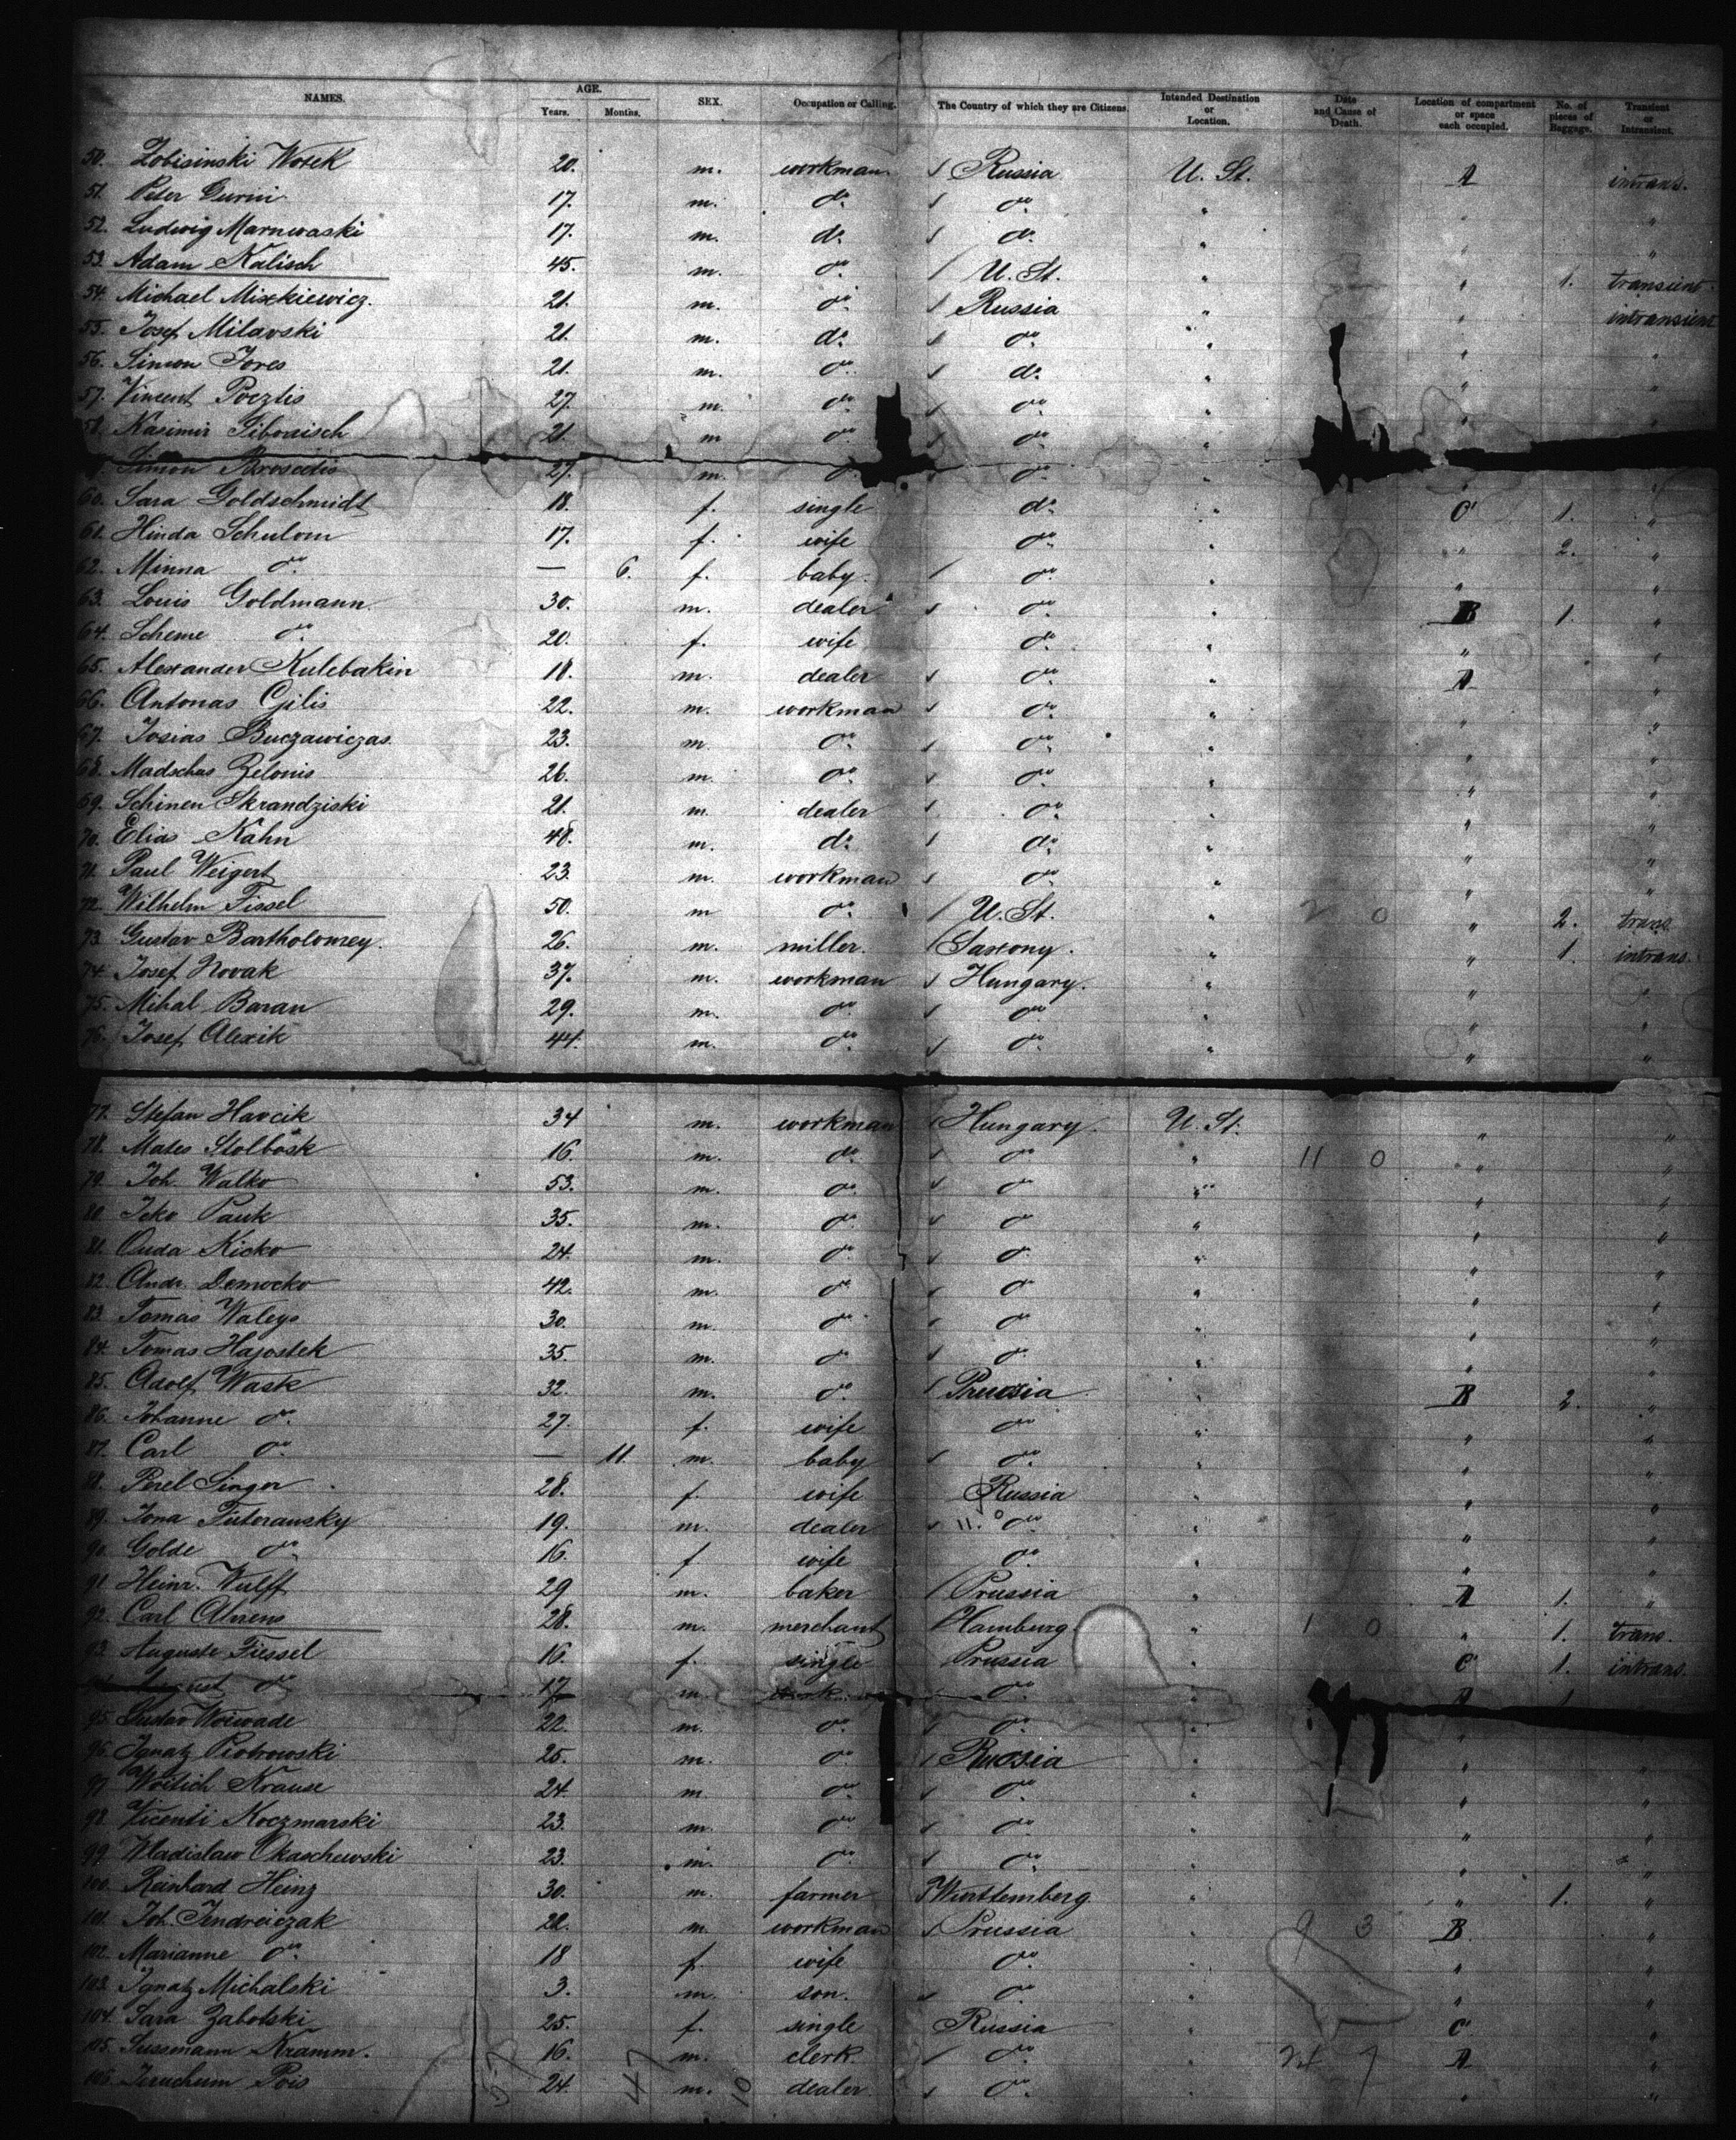 NAMES. AGE. Years. Months. SEX. Occupation or Calling. The Country of which they are Citizens. Intended Destination or Location. Date and Cause of Death. Location of compartment or space each occupied. No. of pieces of Baggage. Transient or Intransient.
50. Zobisinski Wosek 20. m. workman. Russia U. St. A intrans.
51. Peter Gurini 17. m. do. do. "
52. Ludwig Marnwaski 17. m. do. do. " "
53. Adam Kalisch 45. m. do. U. St. " " 1. transient
54. Michael Mixkiewicz. 21. m. do. Russia " " intransient
55. Josef Milavski 21. m. do. do. " " "
56. Simon Jores 21. m. do. do. " " "
57. Vincent Pocztis 27. m. do. do. " " "
58. Kasimir Tibonisch 21. m do. do. "
Simon 27. m. do. do. " " "
60. Sara Goldschmidt 18. f. single do. " C 1. "
61. Hinda Schulom 17. f. wife do. " " 2. "
62. Minna do. — 6. f. baby. do. " " "
63. Louis Goldmann. 30. m. dealer do. " B 1. "
64. Scheme do. 20. f. wife do. " " "
65. Alexander Kulebakin 18. m. dealer do. " A "
66. Antonas Gilis 22. m. workman do. " " "
67. Josias Buczawiczas. 23. m. do. do. " " "
68. Madschus Zelonis 26. m. do. do. " " "
69. Schinen Skrandziski 21. m. dealer do. " " "
70. Elias Kahn 48. m. do. do. " " "
71. Paul Weigert 23. m. workman do. " " "
72. Wilhelm Fissel 50. m do. U. St. " 2 0 " 2. trans.
73. Gustav Bartholomey. 26. m. miller. Saxony. " " 1. intrans.
74. Josef Novak 37. m. workman Hungary. " " "
75. Mihal Baran 29. m. do. do. " " "
76. Josef Alexik 44. m. do. do. " " "
77. Stefan Havcik 34 m. workman Hungary. U. St. " "
78. Mates Stolbosk 16. m. do. do. " 11 0 " "
79. Joh. Walko 53. m. do. do " " "
80. Jcko Pauk 35. m. do. do " " "
81. Onda Kicko 24. m. do. do. " " "
82. Andr. Democko 42. m. do. do " " "
83. Tomas Waleys 30. m. do. do " " "
84. Tomas Hajostek 35. m. do. do. " " "
85. Adolf Wask 32. m. do. Prussia " B 2. "
86. Johanne do. 27. f. wife do. " " "
87. Carl do. — 11. m. baby do. " " "
88. Perel Singer 28. f. wife Russia " " "
89. Jona Futeransky 19. m. dealer 11. 0 do. " " "
90. Golde do. 16. f wife do. " " "
91. Heinr. Wulff 29 m. baker Prussia " A 1. "
92. Carl Ahrens 28. m. merchant Hamburg. " 1 0 " 1. trans.
93. Auguste Fiessel 16. f. single Prussia " C 1. intrans.
August do. 17. m. do. " A 1
95. Gustav Woiwade 22. m. do. do. " "
96. Ignatz Piotrowski 25. m. do. Russia " " "
97. Woitich Krause 24. m. do. do. " " "
98. Vicenti Koczmarski 23. m. do. do. " " "
99. Wladislaw Okaschewski 23. m. do. do. " " "
100. Reinhard Heinz 30. m. farmer Württemberg. " " 1. "
101. Joh. Jendreiczak 22. m. workman Prussia " 9 3 B "
102. Marianne do. 18 f. wife do. " " "
103. Ignatz Michalski 3. m. son. do. " " "
104. Sara Zabotski 25. f. single Russia " C "
105. Sussmann Kramm. 16. m. clerk. do. " 24 7 A "
106. Jeruchum Pois 24. m. dealer. do. " " "
57 47 10